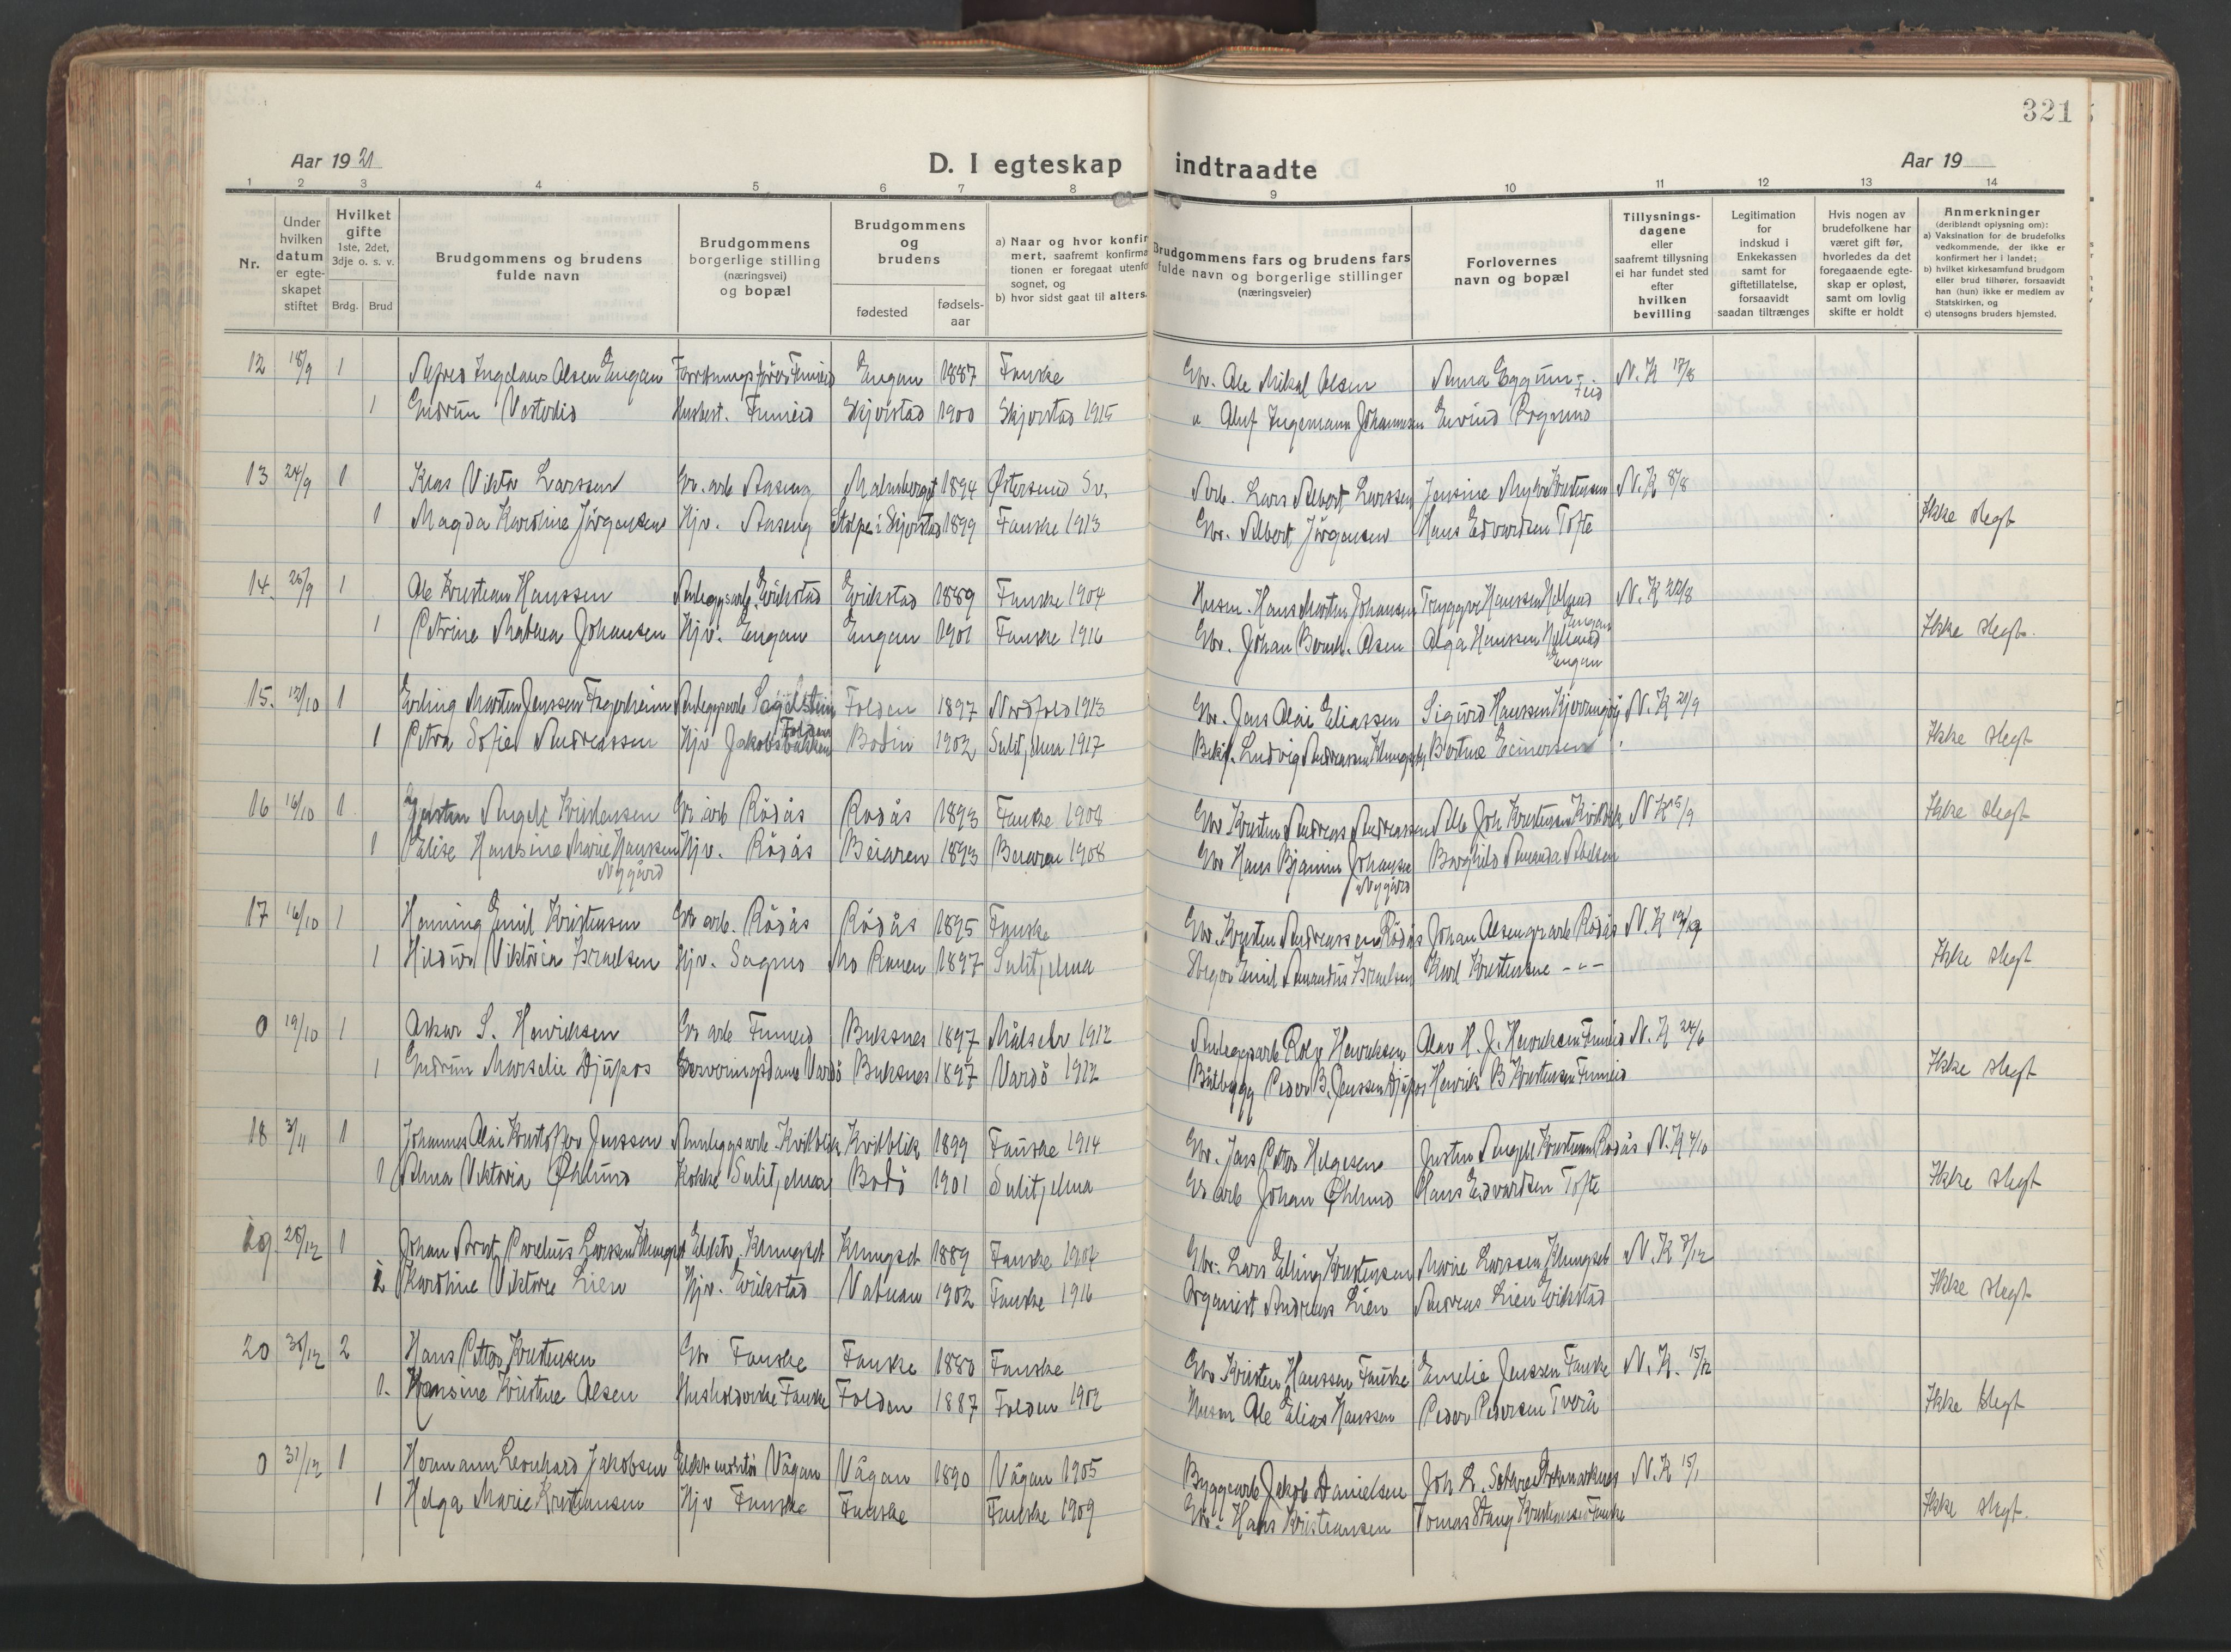 321
Aar 19 21
D. I egteskap
indtraadte
Aar 19
1 2 3 4 5 6 7 8 9 10 11 12 13 14
Nr.
Under hvilken datum er egte-skapet stiftet
Hvilket gifte 1ste, 2det, 3dje o. s. v.
Brdg. Brud
Brudgommens og brudens fulde navn
Brudgommens borgerlige stilling (næringsvei) og bopæl
Brudgommens og brudens
fødested
fødsels-aar
a) Naar og hvor konfir
mert, saafremt konfirma
tionen er foregaat utenfo
sognet, og
b) hvor sidst gaat til alters.
Brudgommens fars og brudens fars
fulde navn og borgerlige stillinger
(næringsveier)
Forlovernes
navn og bopæl
Tillysnings-
dagene
eller
saafremt tillysning
ei har fundet sted
efter
hvilken
bevilling
Legitimation
for
indskud i
Enkekassen
samt for
giftetillatelse,
forsaavidt
saadan tiltrænges
Hvis nogen av
brudefolkene har
været gift før,
hvorledes da det
foregaaende egte-
skap er opløst,
samt om lovlig
skifte er holdt
Anmerkninger
(deriblandt oplysning om):
a) Vaksination for de brudefolks
vedkommende, der ikke er
konfirmert her i landet;
b) hvilket kirkesamfund brudgom
eller brud tilhører, forsaavidt
han (hun) ikke er medlem av
Statskirken, og
c) utensogns bruders hjemsted.
12 18/9 1 Alfred Olsen Engan Finneid Engan 1887 Fauske Gbr. Ole Mikal Olsen Anna N. K 17/8
1 Gudrun Vesterlid Finneid Skjerstad 1900 Skjerstad 1915 Oluf Ingemann Johannesen Eivind
13 24/9 1 Viktor Larssen Gr. arb Aaseng Malmberget 1894 Østersund Sv. Arb. Lars Albert Larssen Jensine N. K 8/8
1 Magda Karoline Jörgensen Hjv. Aaseng i Skjerstad 1899 Fauske 1913 Gbr. Albert Jörgensen Hans Edvardsen Tofte Ikke slegt
14. 25/9 1 Ole Kristian Hanssen Anleggsarb. Erikstad Erikstad 1889 Fauske 1904 Husm. Hans Morten Johansen Tryggve Hanssen N. K 22/8
Engan
1 Petrine Mathea Johansen Hjv. Engan Engan 1901 Fauske 1916 Gbr. Johan Olsen Olga Hanssen Ikke slegt.
Engan
15. 12/10 1 Erling Morten Jenssen Fagerheim Anleggsarb Folden 1897 Nordfold 1913 Gbr. Jens Olai Eliassen Sigurd Hanssen N. K 21/9
Folden
1 Petra Sofie Andreassen Hjv Jakobsbakken Bodin 1902 Sulitjelma 1917 Ludvig Andreassen Einersen Ikke slegt
16 16/10 1 Justin Angell Kristensen Gr arb Rödås Rödås 1893 Fauske 1908 Gbr Kristen Andreas Andreassen Joh Kristensen N K 15/9 Ikke slegt
1 Elise Hansine Marie Hanssen Hjv. Rödås Beiaren 1893 Beiaren 1908 Gbr Hans Bjamin Johansen Borghild Amanda
Nygård
Nygård
17 16/10 1 Henning Emil Kristensen Gr arb. Rödås Rödås 1895 Fauske Gbr. Kristen Andreassen Rödås Johan Olsen Rödås N. K
1 Hildur Viktoria Israelsen Hjv. Sagmo Mo Ranen 1897 Sulitjelma Emil Amandus Israelsen Karl Kristensen - " - Ikke slegt
0 19/10 1 Oskar S. Henriksen Gr arb Finneid Buksnes 1897 Målselv 1912 Anleggsarb Rolv Henriksen Olav H. J. Henriksen Finneid N. K 24/6
1 Gudrun Marselie Djupos Vardö Buksnes 1897 Vardö 1912 Peder B. Jenssen Djupos Henrik B Kristensen Finneid Ikke slegt
18 3/11 1 Johannes Olai Kristoffer Jenssen Anleggsarb. Kvitblik Kvitblik 1899 Fauske 1914 Gbr. Jens Petter Helgesen Justin Angell Kristensen Rödås N. K 4/10
1 Alma Viktoria Øhlund Kokke Sulitjelma Bodö 1901 Sulitjelma Gr arb Johan Øhlund Hans Edvardsen Tofte Ikke slegt
19 28/12 1 Johan Arnt Parelius Larssen Klungset Elektr. Klungset Klungset 1889 Fauske 1904 Gbr. Lars Elling Kristensen Marie Larssen Klungset N. K 7/12
1 Karoline Viktorie Lien Hjv. Erikstad Vatnan 1902 Fauske 1916 Organist Andreas Lien Andreas Lien Erikstad Ikke slegt
20 30/12 2 Hans Petter Kristensen Gbr Fauske Fauske 1880 Fauske Gbr Kristen Hanssen Fauske Emelie Jenssen Fauske N. K. 15/12
1. Hansine Kristine Olsen Husholderske Fauske Folden 1887 Folden 1902 Husm Ole Elias Hanssen Peder Pedersen Tverå Ikke slegt
0 31/12 1 Hermann Leonhard Jakobsen Elektr montör Vågan Vågan 1890 Vågan 1905 Byggearb Jakob Danielsen Joh L. N. K 15/1
1 Helga Marie Kristiansen Hjv Fauske Fauske Fauske 1909 Gbr. Hans Kristiansen Tomas Stang Kristiansen Fauske Ikke slegt.